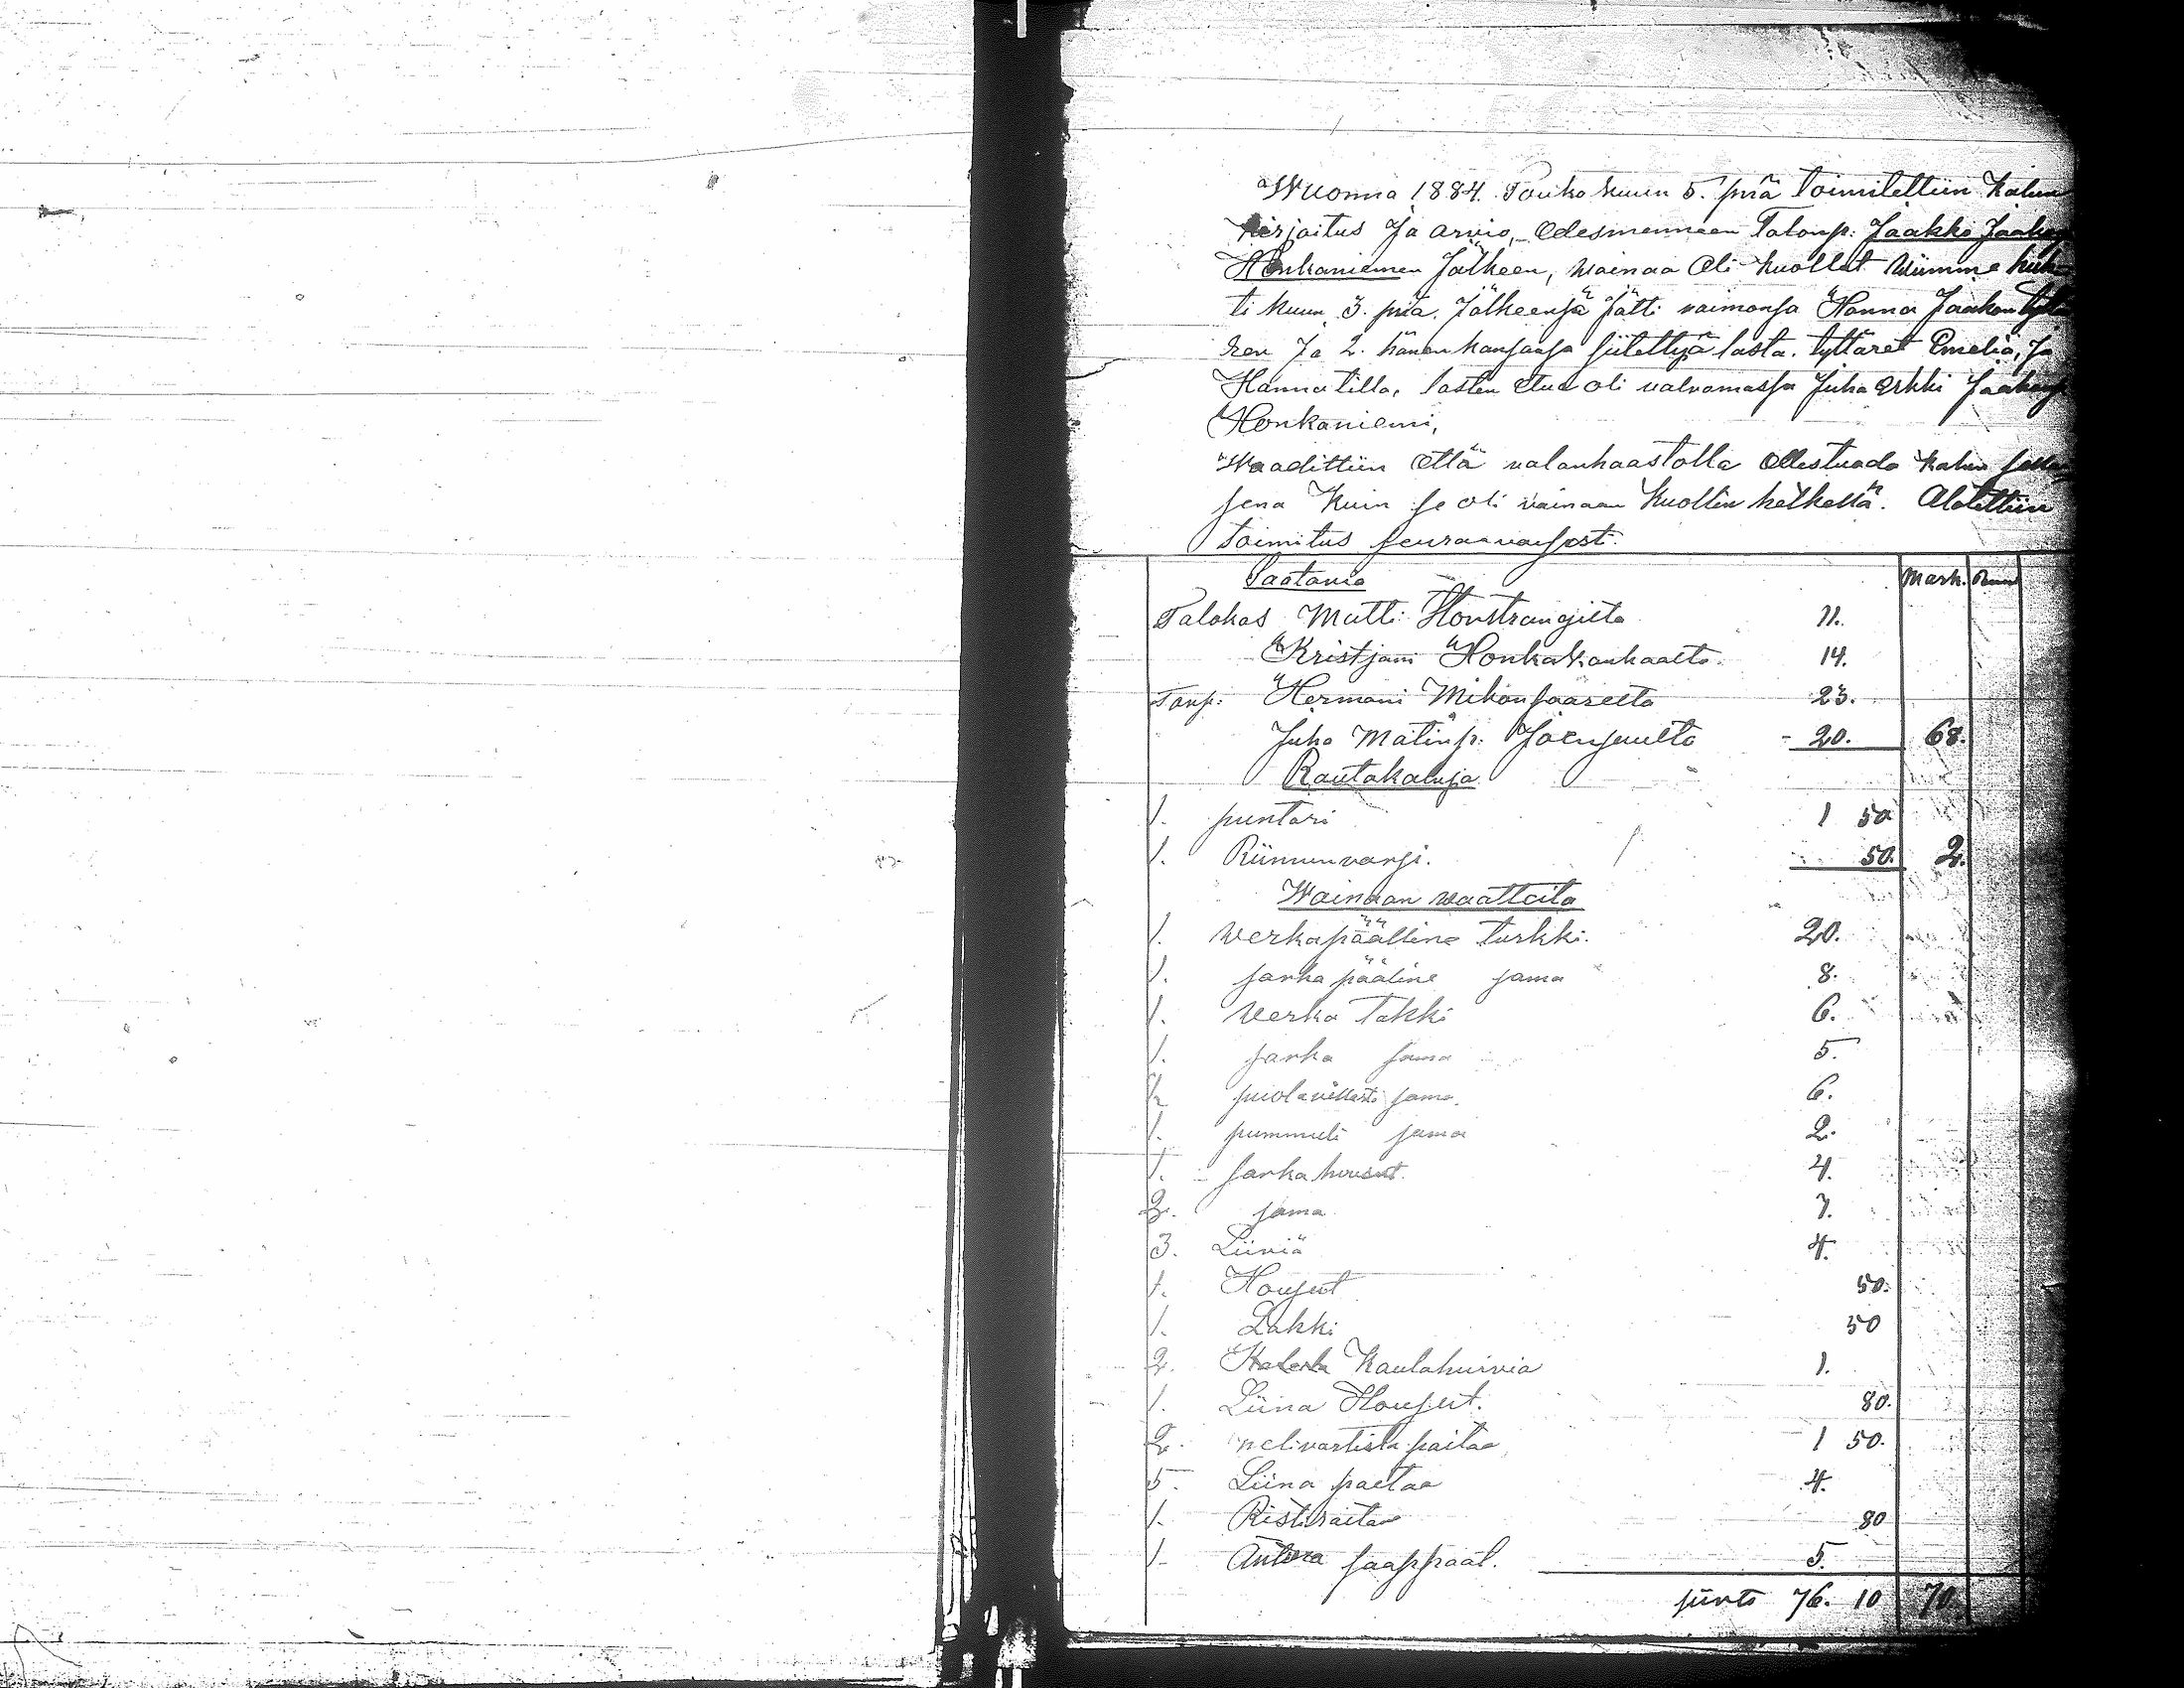 Wuonna 1884. Toukokuun 5. piä toimitettiin Kalun
Kirjoitus Ja arvio, Edesmenneen Talonp: Jaakko Jaakonp
Honkaniemen Jälkeen, Wainaa Oli Kuollut Wiimme huh
ti kuun 3. piä. Jälkeensä Jätti vaimonsa Hanna Jaakon
ren Ja 2. hänen kansansa siitettyä lasta. tyttäret Emelia, Ja
Hannatilla, lasten etua oli valvomassa Juha Erkki Jaakonp
Honkaniemi,
Waadittiin Että valanhaastolla Ollestuada kalun
sena Kuin se oli vainaan Kuollin hetkellä. Alotettiin
toimitus seuraavaisest.
Saatavia
Mark. Penni
Talokas Matti 11.
Kristjani Honkakankaalta 14.
Tonp: Hermani Mikonsaarelta 23.
Juha Matinp. Joensuulta 20. 68.
Rautakaluja
1. puntari 1 50
1. Riimunvarsi. 50. 2.
Wainaan waatteita
1. Werkapäälline turkki. 20.
1. sarkapääline sama 8.
1. Verka Takki 6.
1. sarka sama 5.
puolavillasti sama. 6.
1. pummuli sama 2.
1. sarka housut. 4.
2. sama 7.
3. Liiviä 4.
1. Housut 50.
1. Lakki 50
2. Kaulahuivia 1.
1. Liina Housut. 80.
2. nelivartista paitaa 1 50.
5. Liina paitaa 4.
1. Ristiraitaa 80
1. Antura saappaat. 5.
siirto 76. 10 70.